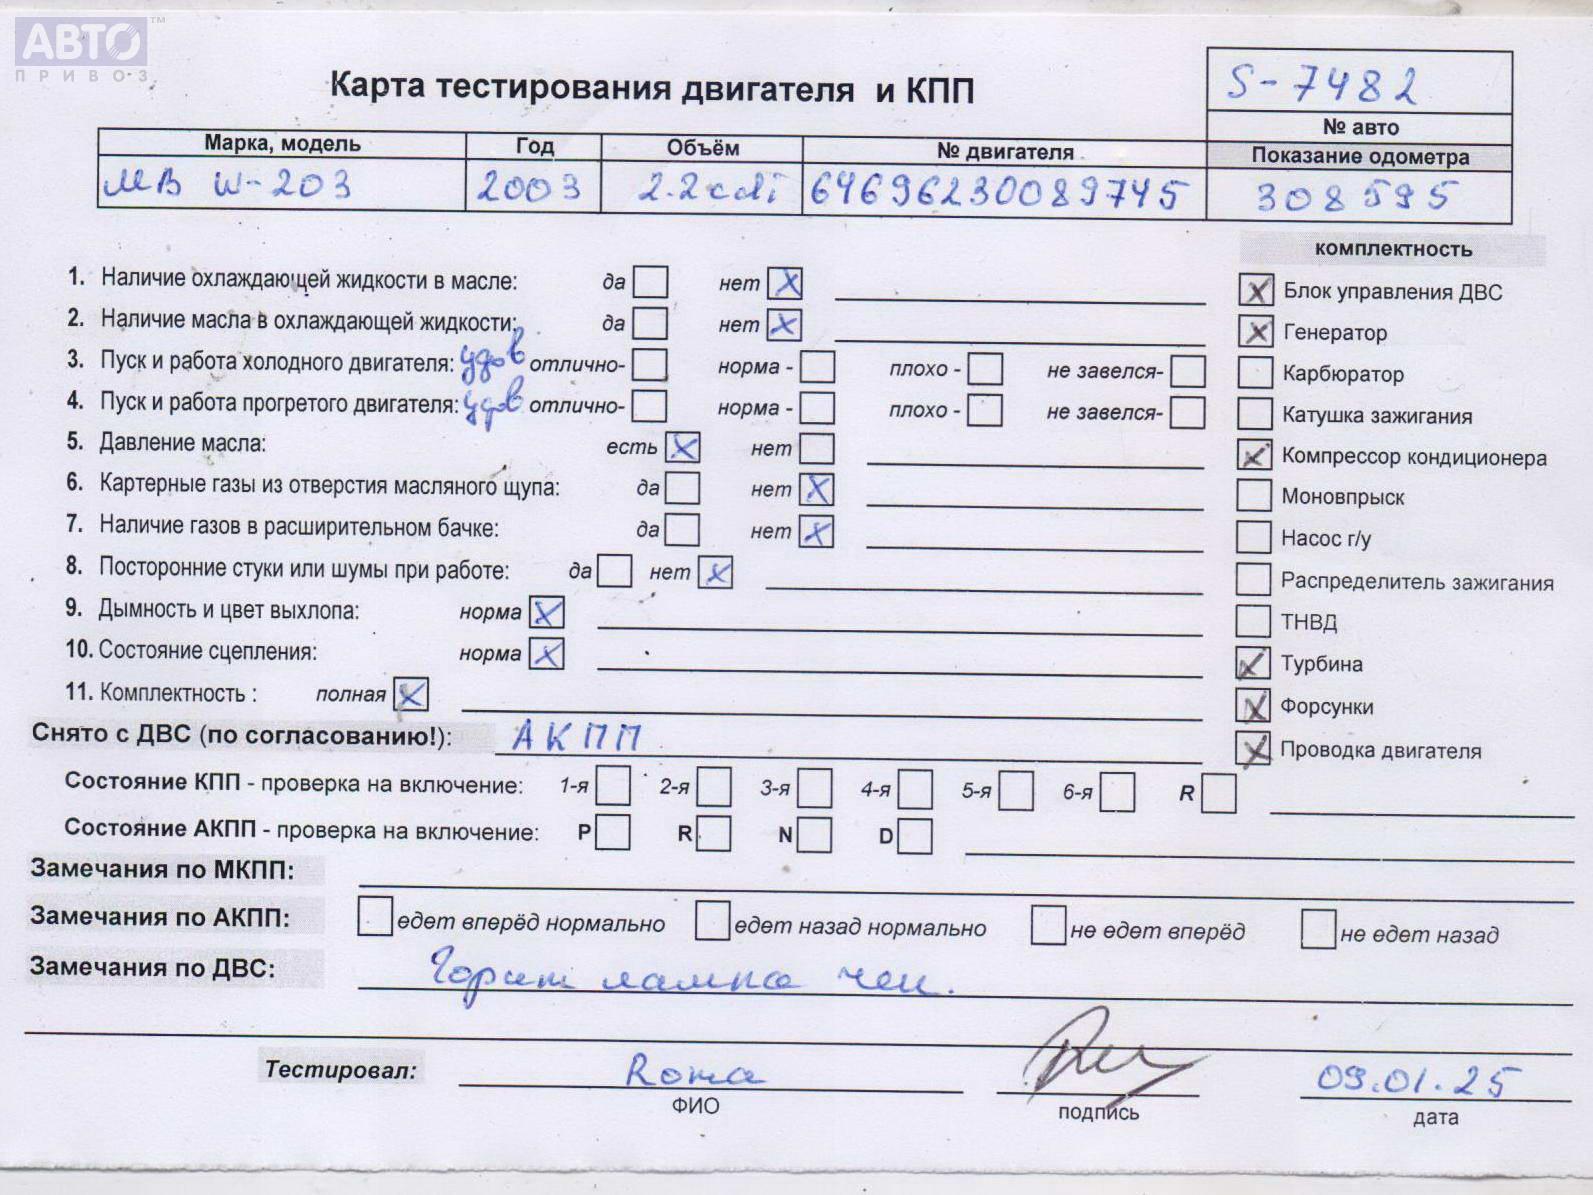 АВТО™
ПРИВОЗ
Карта тестирования двигателя и КПП
S-7482
№ авто
Марка, модель Год Объём № двигателя Показание одометра
МВ W-203 2003 2.2 cdi 64696230089745 308595
комплектность
1. Наличие охлаждающей жидкости в масле: да нет X
Блок управления ДВС X
2. Наличие масла в охлаждающей жидкости: да нет X
Генератор X
3. Пуск и работа холодного двигателя: удов отлично- норма - плохо - не завелся-
Карбюратор
4. Пуск и работа прогретого двигателя: удов отлично- норма - плохо - не завелся-
Катушка зажигания
5. Давление масла: есть X нет
Компрессор кондиционера X
6. Картерные газы из отверстия масляного щупа: да нет X
Моновпрыск
7. Наличие газов в расширительном бачке: да нет X
Насос г/у
8. Посторонние стуки или шумы при работе: да нет X
Распределитель зажигания
9. Дымность и цвет выхлопа: норма X
ТНВД
10. Состояние сцепления: норма X
Турбина X
11. Комплектность : полная X
Форсунки X
Снято с ДВС (по согласованию!): АКПП
Проводка двигателя X
Состояние КПП - проверка на включение: 1-я 2-я 3-я 4-я 5-я 6-я R
Состояние АКПП - проверка на включение: P R N D
Замечания по МКПП:
Замечания по АКПП: едет вперёд нормально едет назад нормально не едет вперёд не едет назад
Замечания по ДВС: Горит лампа чек.
Тестировал: Рома 09.01.25
ФИО подпись дата